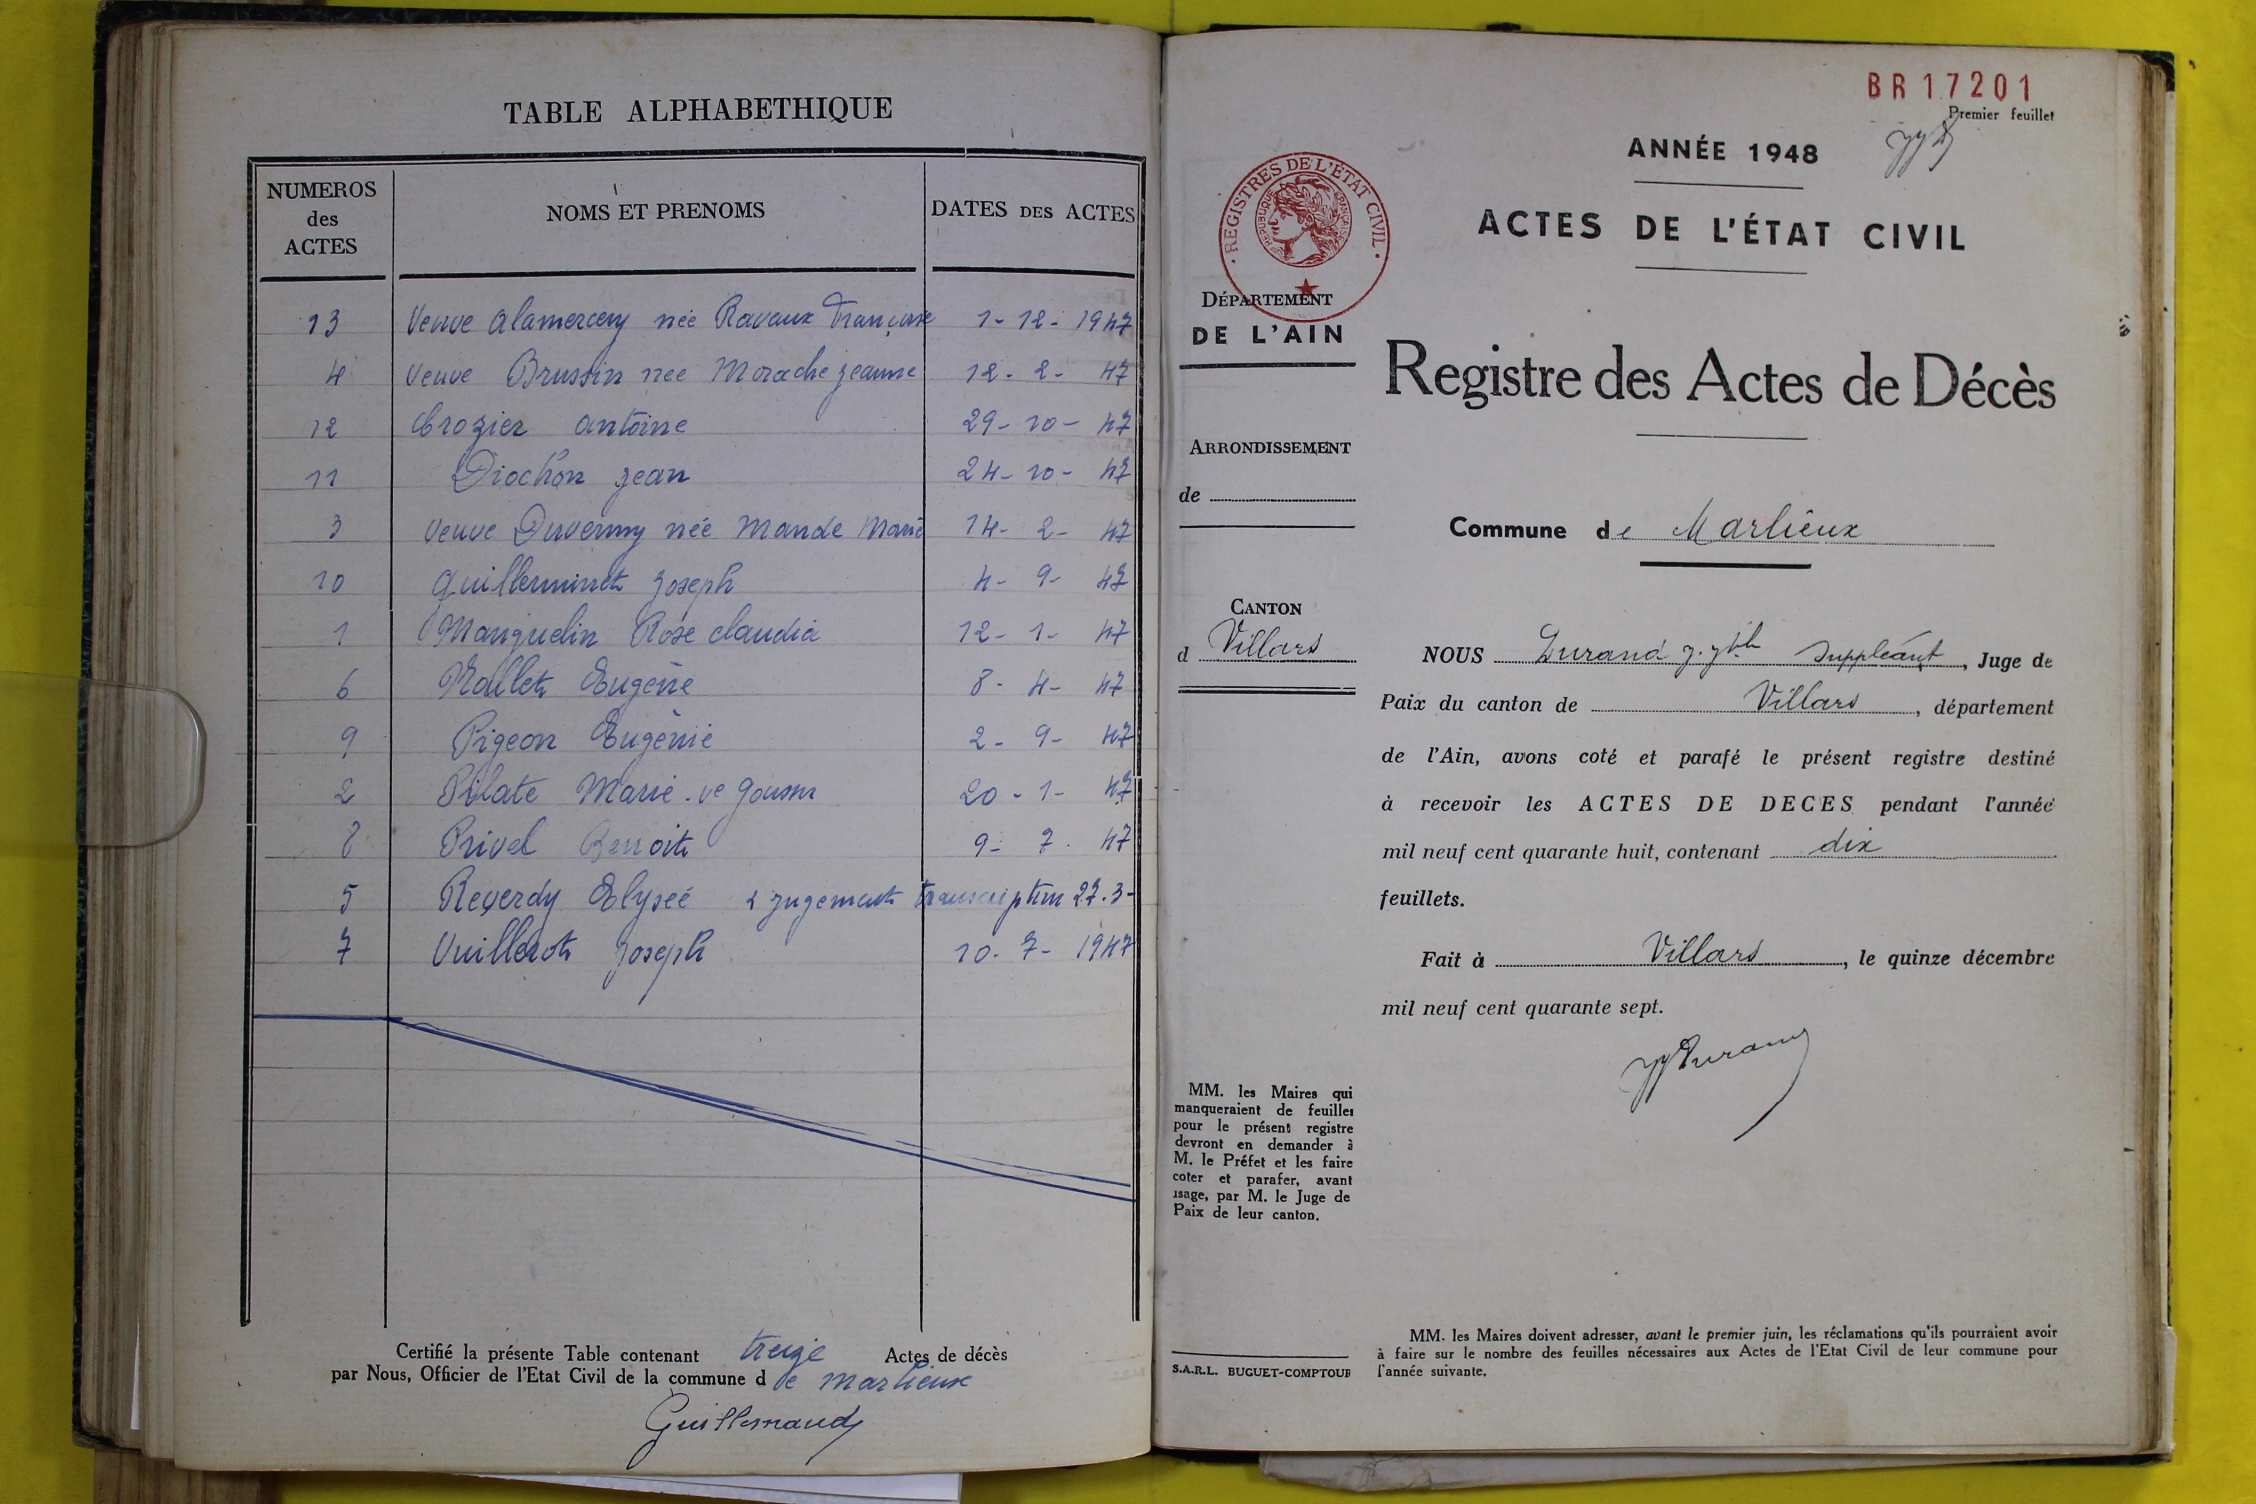 TABLE ALPHABETHIQUE
NUMEROS des ACTES NOMS ET PRENOMS DATES DES ACTES
13 Veuve Alamercery née Ravaux Françoise 1-12-1947
4 Veuve Brussin née Morache Jeanne 12-2-47
12 Crozier Antoine 29-10-47
11 Diochon Jean 24-10-47
3 Veuve Duvernay née Mande Marie 14-2-47
10 Guillerminet Joseph 4-9-47
1 Manguelin Rose Claudia 12-1-47
6 Mollet Eugène 8-4-47
9 Pigeon Eugénie 2-9-47
2 Pilate Marie ve 20-1-47
8 Privel Benoit 9-7-47
5 Reverdy Elysée jugement transcription 27.3-
7 Vuillerot Joseph 10-7-1947
Certifié la présente Table contenant treize Actes de décès
par Nous, Officier de l'Etat Civil de la commune d de Marlieux
Guillemaud
BR17201
Premier feuillet
ANNÉE 1948
ACTES DE L'ÉTAT CIVIL
Registre des Actes de Décès
Commune de Marlieux
NOUS Durand Suppléant, Juge de
Paix du canton de Villars, département
de l'Ain, avons coté et parafé le présent registre destiné
à recevoir les ACTES DE DECES pendant l'année
mil neuf cent quarante huit, contenant dix
feuillets.
Fait à Villars, le quinze décembre
mil neuf cent quarante sept.
Durand
MM. les Maires doivent adresser, avant le premier juin, les réclamations qu'ils pourraient avoir
à faire sur le nombre des feuilles nécessaires aux Actes de l'Etat Civil de leur commune pour
l'année suivante.
· REGISTRES DE L'ÉTAT CIVIL ·
REPUBLIQUE FRANÇAISE
DÉPARTEMENT
DE L'AIN
ARRONDISSEMENT
de
CANTON
d Villars
MM. les Maires qui
manqueraient de feuilles
pour le présent registre
devront en demander à
M. le Préfet et les faire
coter et parafer, avant
usage, par M. le Juge de
Paix de leur canton.
S.A.R.L. BUGUET-COMPTOUR